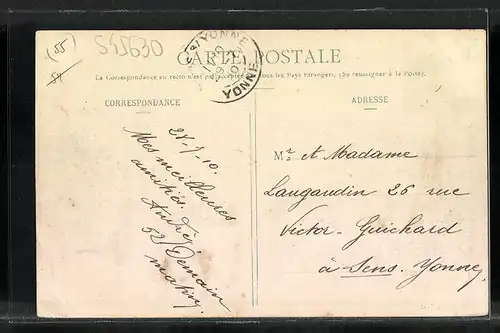 (55)
S45630
54
CARTE POSTALE
La Correspondance au recto n'est pas acceptée tous les Pays étrangers. (Se renseigner à la Poste).
CORRESPONDANCE
ADRESSE
S/YONNE
YONNE
28-7-10.
Mes meilleures
amitiés.
André
52 Demain
matin
Mr et Madame
Langaudin 26 rue
Victor-Guichard
à Sens. Yonne